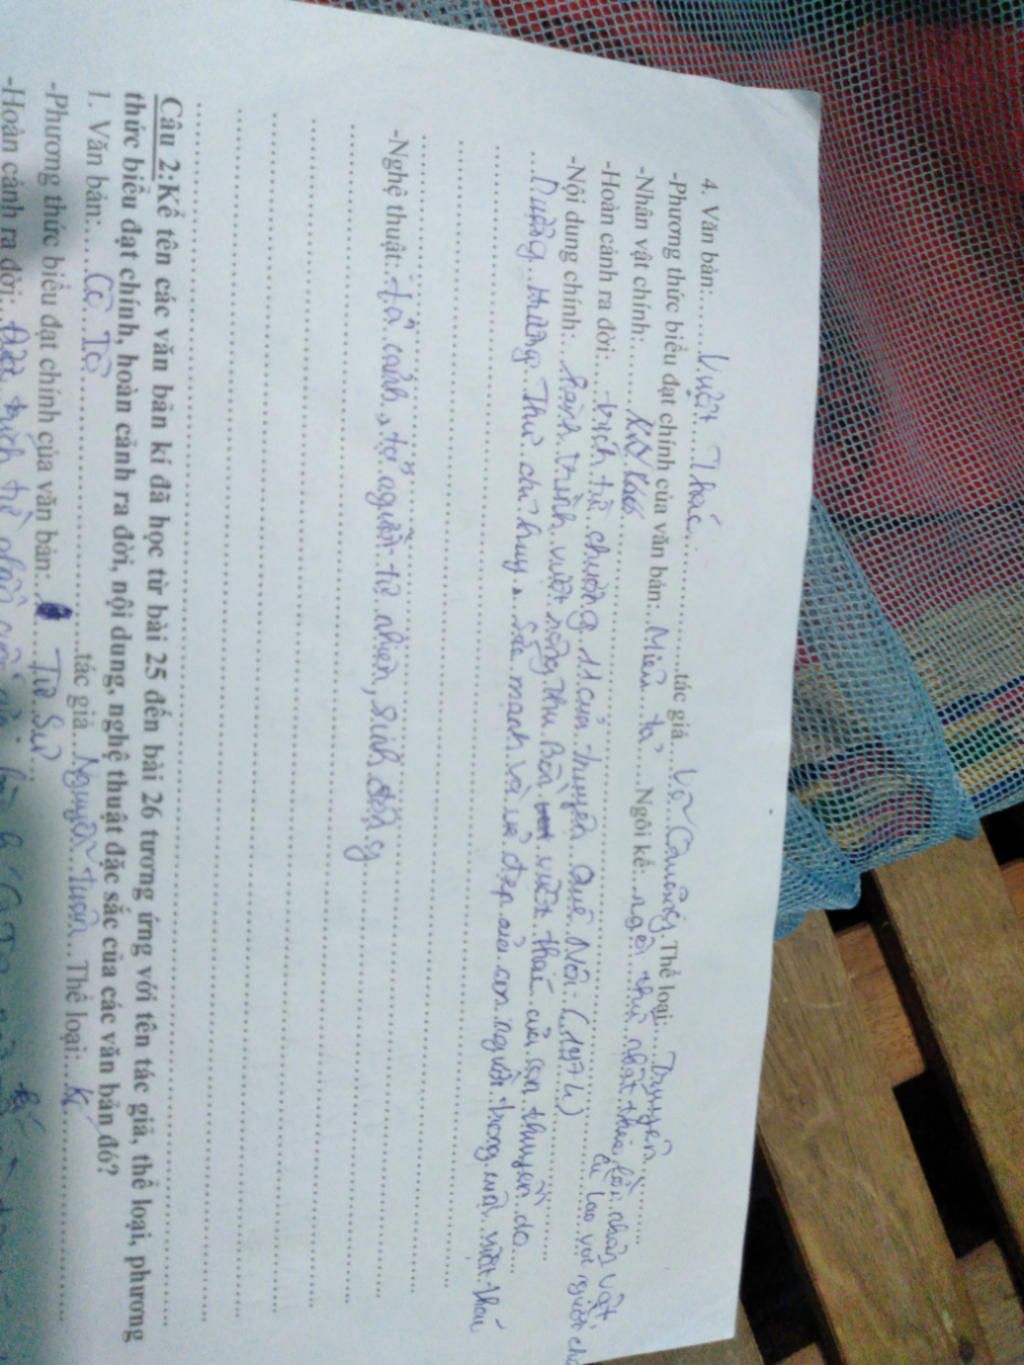 4. Văn bản:......Vượt Thác.............tác giả...Võ Quảng Thể loại:...Truyện.........
-Phương thức biểu đạt chính của văn bản:..Miêu tả.....Ngôi kể:..ngôi thứ nhất theo lời nhân vật
-Nhân vật chính:.......
cù lao với người
-Hoàn cảnh ra đời:...trích từ chương 11 của truyện Quê Nội (1974)
-Nội dung chính:...Hành trình vượt sông Thu Bồn vượt thác của con thuyền do...
...Dượng Hương Thư chỉ huy. Sức mạnh và vẻ đẹp của con người trong cuộc vượt thác
-Nghệ thuật..tả cảnh, tả người tự nhiên, sinh động
Câu 2:Kể tên các văn bản kí đã học từ bài 25 đến bài 26 tương ứng với tên tác giả, thể loại, phương
thức biểu đạt chính, hoàn cảnh ra đời, nội dung, nghệ thuật đặc sắc của các văn bản đó?
1. Văn bản:.....Cô Tô.............................tác giả...Nguyễn Tuân...Thể loại:...kí.............
-Phương thức biểu đạt chính của văn bản:.......Tự Sự...
-Hoàn cảnh ra đời: